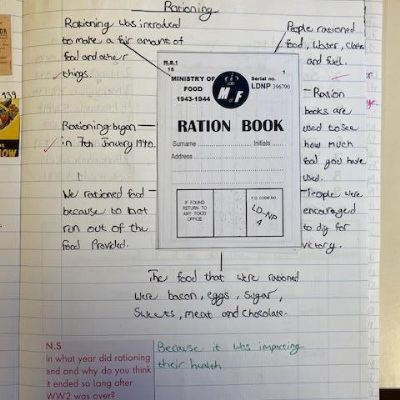 Rationing
Rationing was introduced
to make a fair amount of
food and other
things.
People rationed
food, Water, Clothes
and fuel.
M.B.1
16
1
MINISTRY OF
FOOD
1943-1944
MF
Serial no.
LDNP
RATION BOOK
Surname
Initials
Address
IF FOUND
RETURN TO
ANY FOOD
OFFICE
F.O. CODE NO.
LD-NP
4
Rationing began
in 7th January 1940.
Ration
books are
used to see
how much
food you have
used.
We rationed food
because to not
run out of the
food Provided.
People were
encouraged
to dig for
victory.
The food that were rationed
were bacon, eggs, Sugar,
Sweets, meat and chocolate.
N.S
In what year did rationing
end and why do you think
it ended so long after
WW2 was over?
Because it was impacting
their health
939
OW